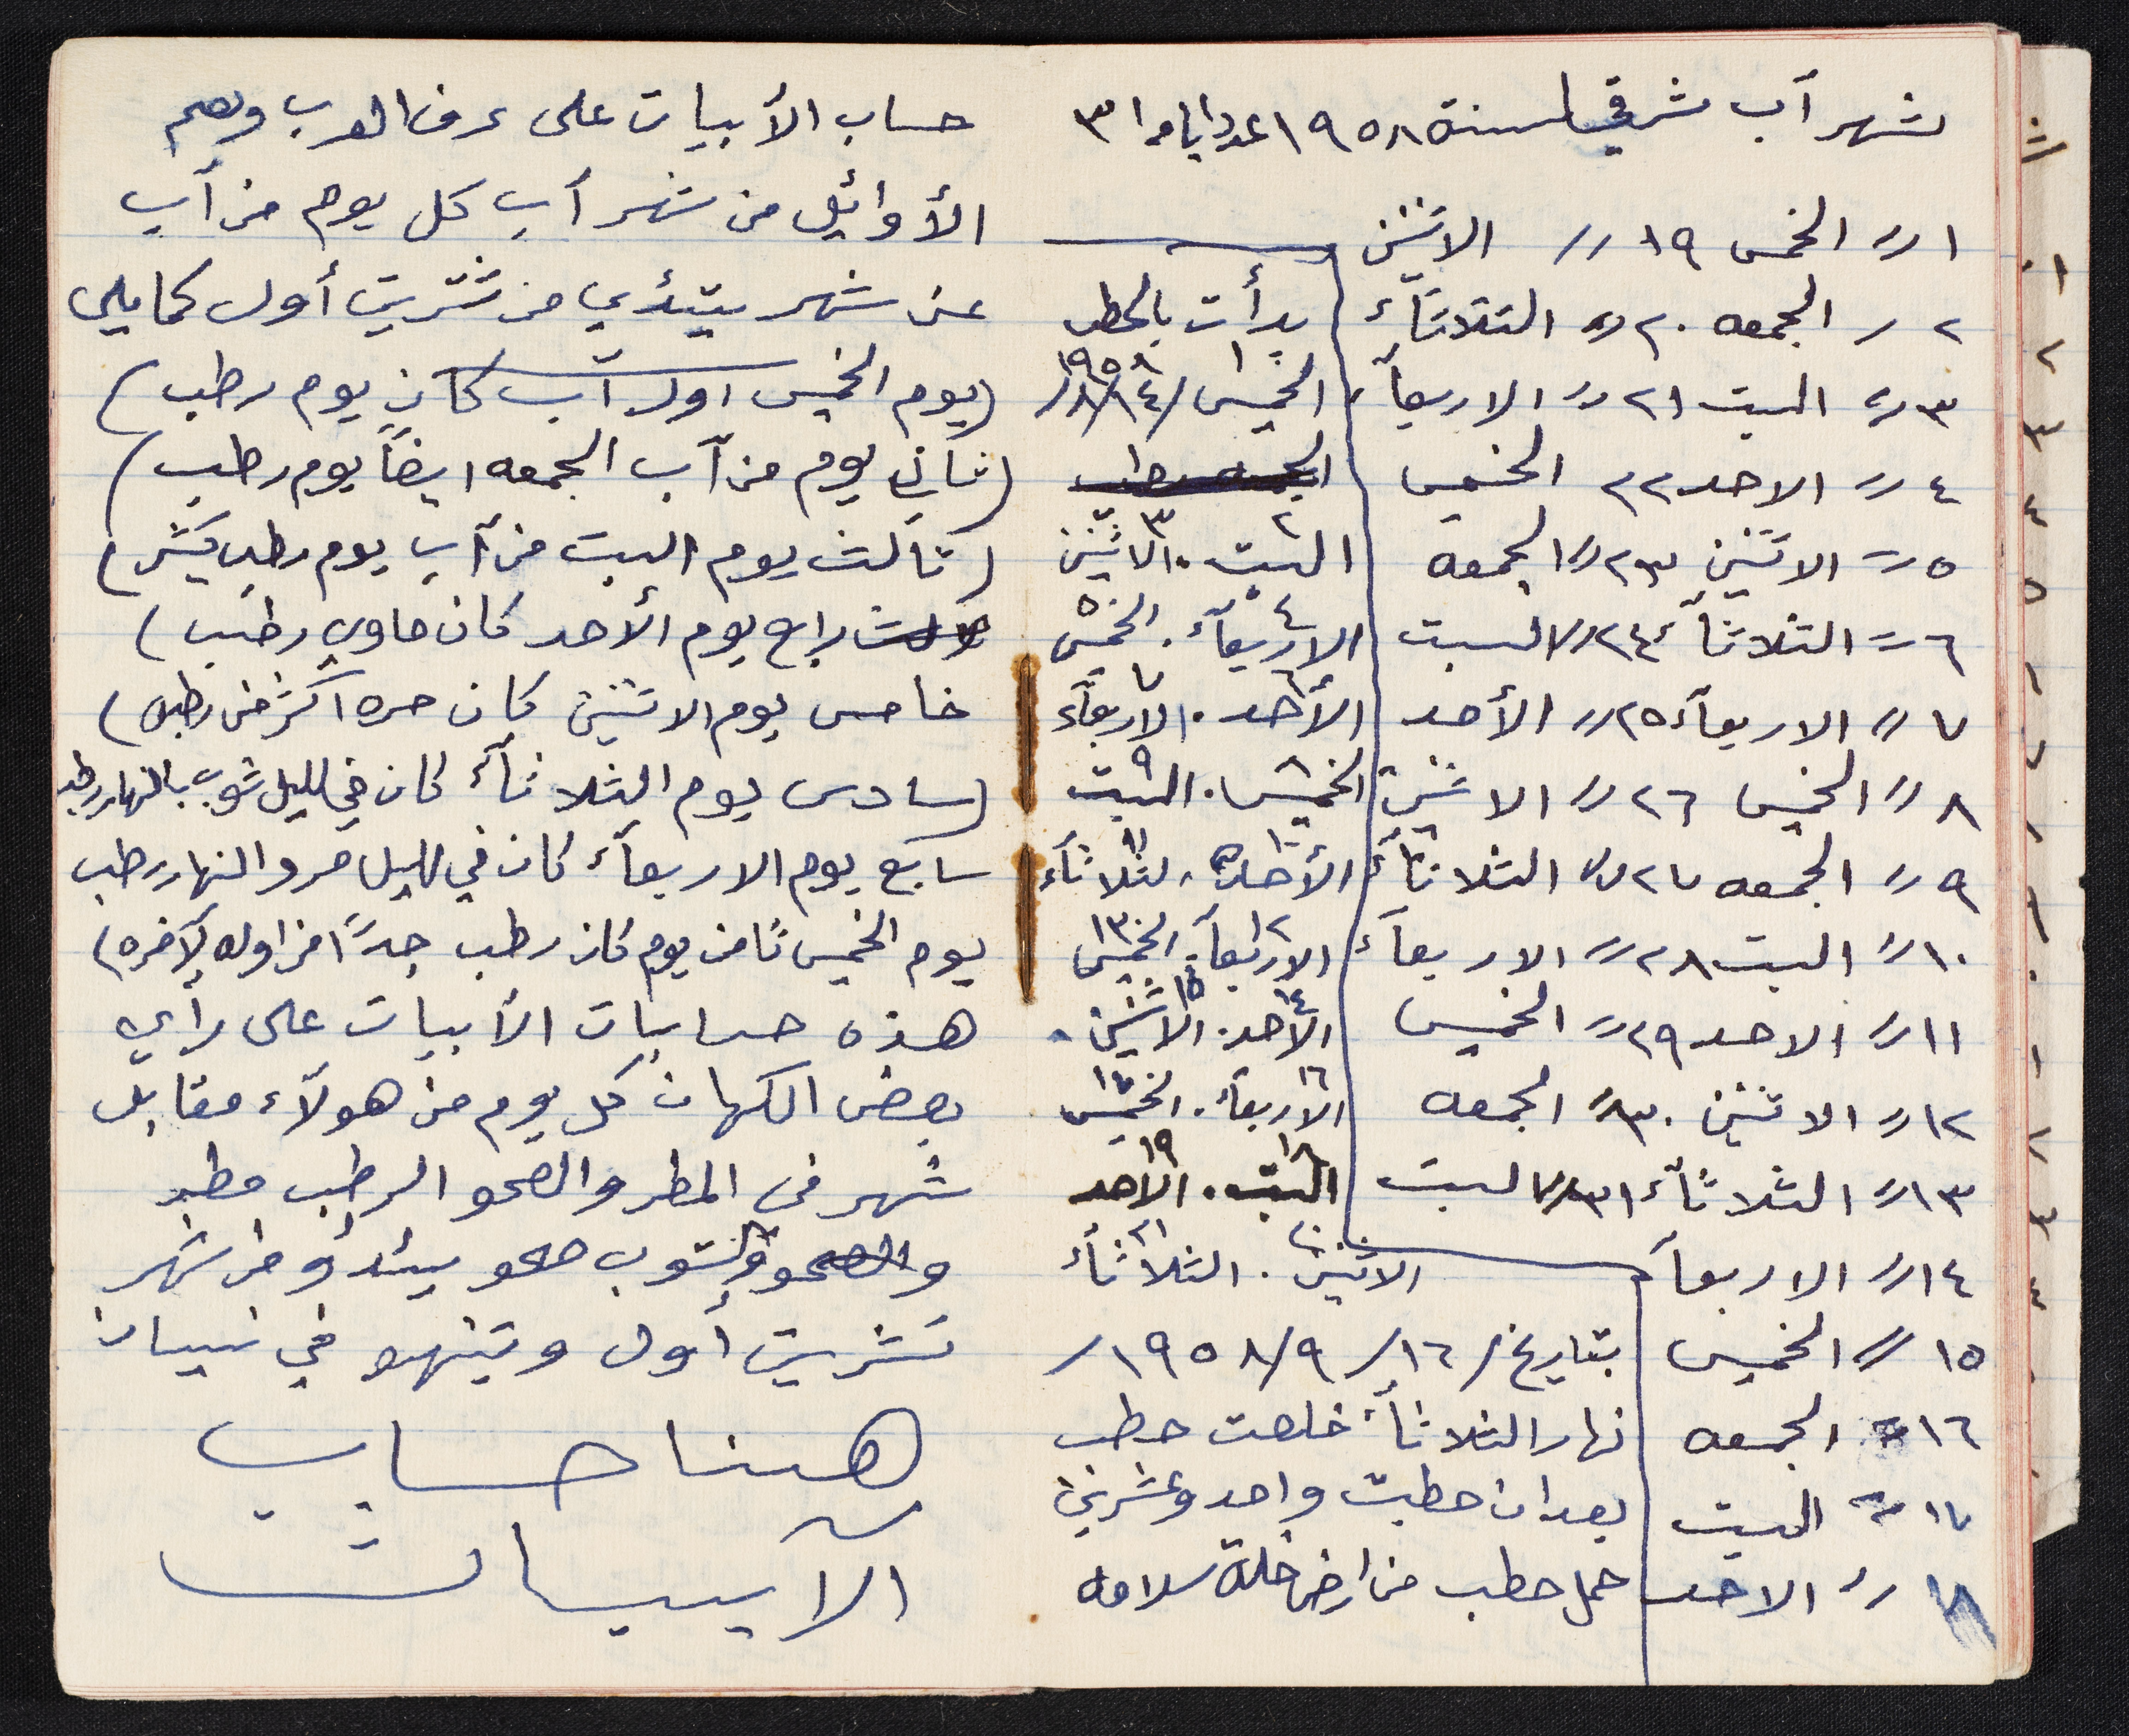 شهر آب شرقي لسنة ١٩٥٨ عدد ايامه ٣١
١ // الخمس ١٩ // الاثنين
٢ / الجمعه ٢٠ // الثلاثآء
٣ // السبت ٢١ // الاربعآء
٤ // الاحد ٢٢ الخميس
٥ // الاثنين ٢٣ // الجمعه
٦ // الثلاثآء ٢٤ // السبت
٧ // الاربعآء ٢٥ // الأحد
٨ // الخميس ٢٦ // الاثنين
٩ // الجمعه ٢٧ // الثلاثآء
١٠ // السبت ٢٨ // الاربعآء
١١ // الاحد ٢٩ // الخميس
١٢ // الاثنين ٣٠ // الجمعه
١٣ // الثلاثآء ٣١ // السبت
١٤ // الاربعآء
١٥ // الخميس
١٦ // الجمعه
١٧ // السبت
١٨ // الاحد
بدأت بالحطب
١
الخميس /١٤/٨/١٩٥٨/
٢ ٣
السبت . الاثنين
٤ ٥
الاربعآء . الخميس
٦ ٧
الأحد . الاربعآء
٨ ٩
الخميس . السبت
١٠ ١١
الأحد . الثلاثآء
١٢ ١٣
الاربعآء . الخميس
١٤ ١٥
الاحد . الاثنين .
١٦ ١٧
الاربعآء . الخميس
١٨ ١٩
السبت . الاحد
٢٠ ٢١
الاثنين . الثلاثآء
بتاريخ /١٦/٩/١٩٥٨/
نهار الثلاثآء خلصت حطب
بعد ان حطبت واحد وعشرين
حمل حطب من ارض خلة سلامه
حساب الأبيات على عرف العرب وهم
الأوائيل من شهر آب كل يوم من آب
عن شهر يبتدي من تشرين أول كما يلي
(يوم الخميس اول آب كان يوم رطب)
(ثاني يوم من آب الجمعه ايضاً يوم رطب)
(ثالث يوم السبت من آب يوم رطب كثير)
رابع يوم الأحد كان حاوي رطب)
خامس يوم الاثنين كان حره اكثر من رطبه)
(سادس يوم الثلاثآء كان في الليل شوب بالنهار رطب
سابع يوم الاربعآء كان في الليل حر والنهار رطب
يوم الخميس ثامن يوم كان رطب جداً من اوله لآخره)
هذه حسابات الأبيات على رأي
بعض الكهان كل يوم من هولآء مقابل
شهر في المطر والصحو الرطب مطر
والشوب صحو يبتدؤ من شهر
تشرين أول وينهو في نيسان
هنا حساب
الابيات